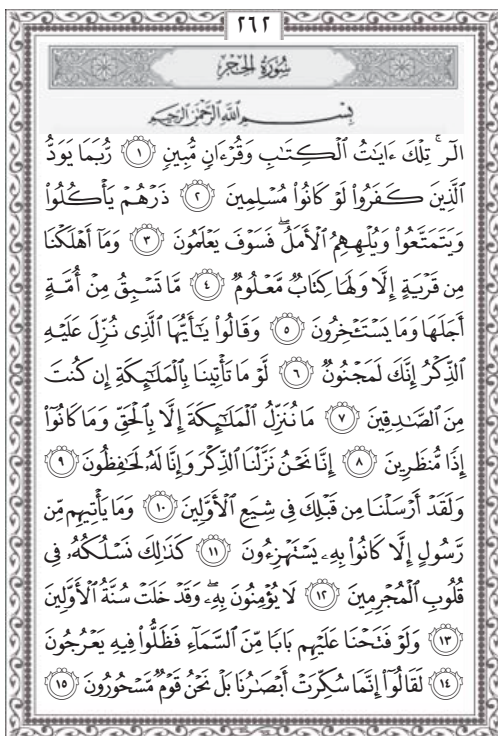 ٢٦٢
سُورَةُ الحِجْرِ
بِسْمِ اللَّهِ الرَّحْمَٰنِ الرَّحِيمِ
الٓرۚ تِلْكَ ءَايَٰتُ ٱلْكِتَٰبِ وَقُرْءَانٍ مُّبِينٍ ١ رُّبَمَا يَوَدُّ
ٱلَّذِينَ كَفَرُوا۟ لَوْ كَانُوا۟ مُسْلِمِينَ ٢ ذَرْهُمْ يَأْكُلُوا۟
وَيَتَمَتَّعُوا۟ وَيُلْهِهِمُ ٱلْأَمَلُۖ فَسَوْفَ يَعْلَمُونَ ٣ وَمَآ أَهْلَكْنَا
مِن قَرْيَةٍ إِلَّا وَلَهَا كِتَابٌ مَّعْلُومٌ ٤ مَّا تَسْبِقُ مِنْ أُمَّةٍ
أَجَلَهَا وَمَا يَسْتَـْٔخِرُونَ ٥ وَقَالُوا۟ يَٰٓأَيُّهَا ٱلَّذِى نُزِّلَ عَلَيْهِ
ٱلذِّكْرُ إِنَّكَ لَمَجْنُونٌ ٦ لَّوْ مَا تَأْتِينَا بِٱلْمَلَٰٓئِكَةِ إِن كُنتَ
مِنَ ٱلصَّٰدِقِينَ ٧ مَا نُنَزِّلُ ٱلْمَلَٰٓئِكَةَ إِلَّا بِٱلْحَقِّ وَمَا كَانُوٓا۟
إِذًا مُّنظَرِينَ ٨ إِنَّا نَحْنُ نَزَّلْنَا ٱلذِّكْرَ وَإِنَّا لَهُۥ لَحَٰفِظُونَ ٩
وَلَقَدْ أَرْسَلْنَا مِن قَبْلِكَ فِى شِيَعِ ٱلْأَوَّلِينَ ١٠ وَمَا يَأْتِيهِم مِّن
رَّسُولٍ إِلَّا كَانُوا۟ بِهِۦ يَسْتَهْزِءُونَ ١١ كَذَٰلِكَ نَسْلُكُهُۥ فِى
قُلُوبِ ٱلْمُجْرِمِينَ ١٢ لَا يُؤْمِنُونَ بِهِۦۖ وَقَدْ خَلَتْ سُنَّةُ ٱلْأَوَّلِينَ
١٣ وَلَوْ فَتَحْنَا عَلَيْهِم بَابًا مِّنَ ٱلسَّمَآءِ فَظَلُّوا۟ فِيهِ يَعْرُجُونَ
١٤ لَقَالُوٓا۟ إِنَّمَا سُكِّرَتْ أَبْصَٰرُنَا بَلْ نَحْنُ قَوْمٌ مَّسْحُورُونَ ١٥